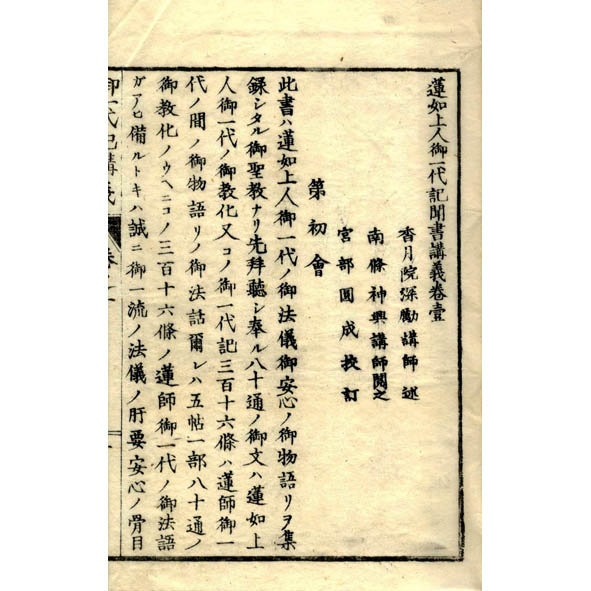 蓮如上人御一代記聞書講義卷壹
香月院深勵講師 述
南條神興講師閲之
宮部圓成挍訂
第初會
此書ハ蓮如上人御一代ノ御法儀御安心ノ御物語リヲ集
録シタル御聖教ナリ先拜聽シ奉ル八十通ノ御文ハ蓮如上
人御一代ノ御教化又コノ御一代記三百十六條ハ蓮師御一
代ノ間ノ御物語リノ御法話爾レハ五帖一部八十通ノ
御教化ノウヘニコノ三百十六條ノ蓮師御一代ノ御法語
ガアヒ備ルトキハ誠ニ御一流ノ法儀ノ肝要安心ノ骨目